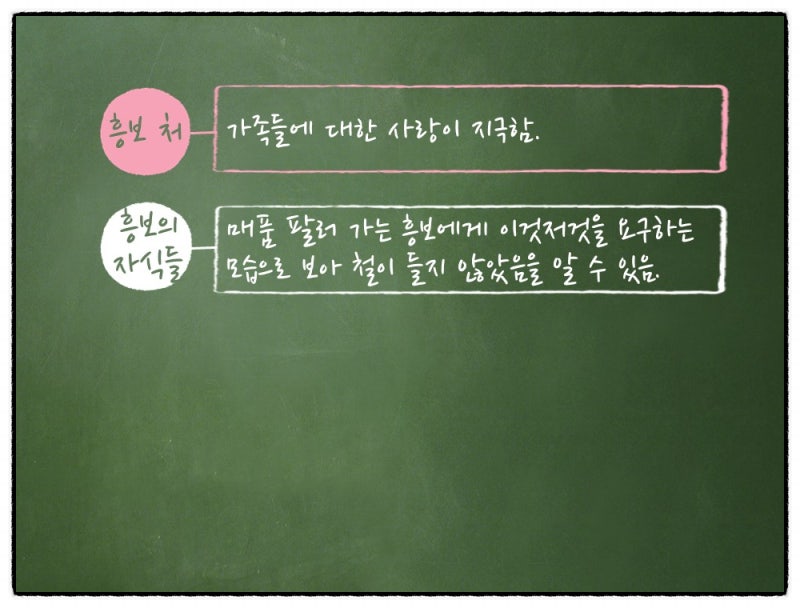 흥보 처
가족들에 대한 사랑이 지극함.
흥보의
자식들
매품 팔러 가는 흥보에게 이것저것을 요구하는
모습으로 보아 철이 들지 않았음을 알 수 있음.